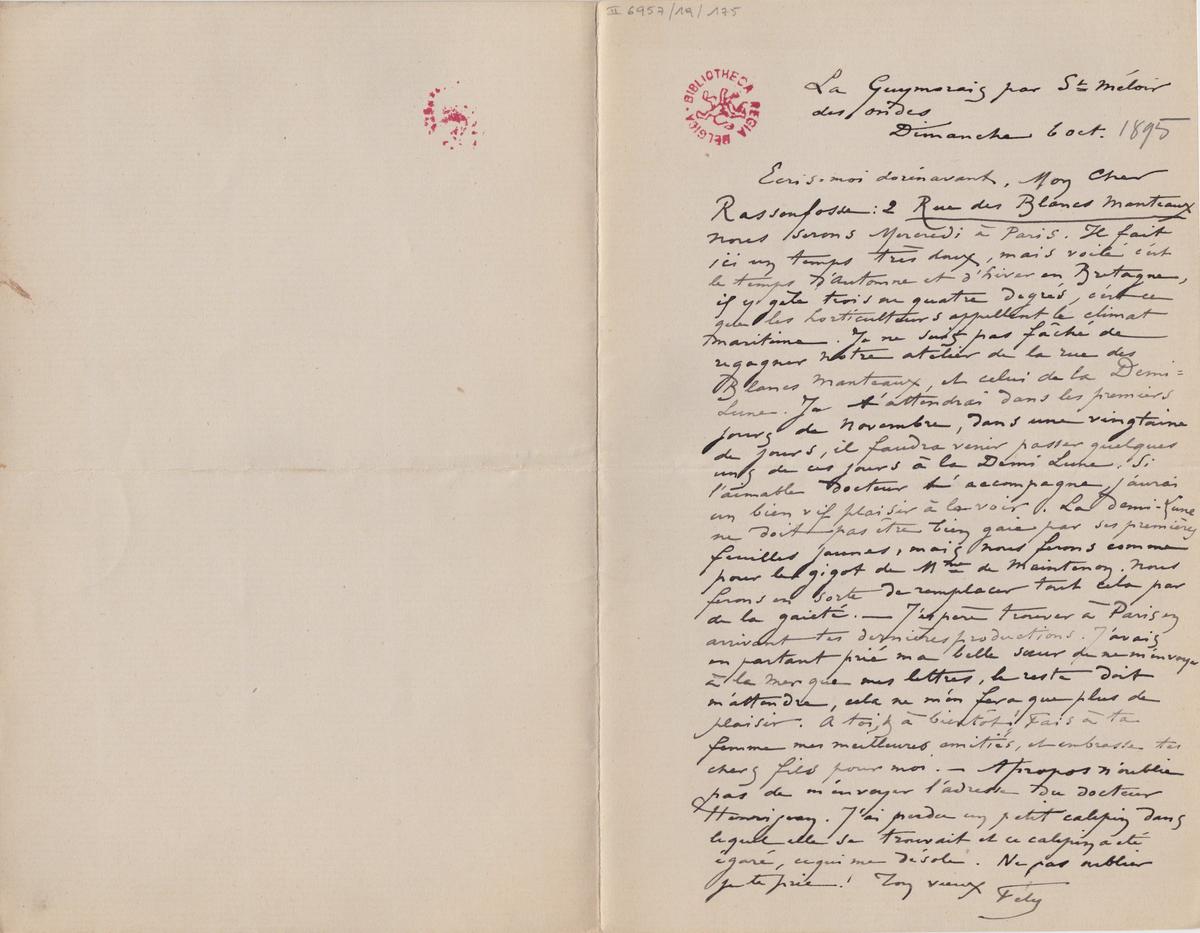 II 6957/19/175
BIBLIOTHECA REGIA BELGICA
La Guymorais par St Méloir
des ondes
Dimanche 6 oct. 1895
Ecris-moi dorénavant, Mon Cher
Rassenfosse : 2 Rue des Blancs Manteaux
nous serons Mercredi à Paris. Il fait
ici un temps très doux, mais voilé c'est
le temps d'Automne et d'hiver en Bretagne,
il y gèle trois ou quatre degrés, c'est ce
que les horticulteurs appellent le climat
maritime. Je ne suis pas fâché de
regagner notre atelier de la rue des
Blancs Manteaux, et celui de la Demi-
Lune. Je t'attendrai dans les premiers
jours de novembre, dans une vingtaine
de jours, il faudra venir passer quelques
uns de ces jours à la Demi Lune. Si
l'aimable docteur t'accompagne, j'aurai
un bien vif plaisir à le voir. La Demi-Lune
ne doit pas être bien gaie par ses premières
feuilles jaunes, mais nous ferons comme
pour le gigot de Mme de Maintenon. nous
ferons en sorte de remplacer tout cela par
de la gaieté. — J'espère trouver à Paris en
arrivant tes dernières productions. J'avais
en partant prié ma belle sœur de ne m'envoyer
à la mer que mes lettres, le reste doit
m'attendre, cela ne m'en fera que plus de
plaisir. A toi, & à bientôt! Fais à ta
femme mes meilleures amitiés, et embrasse tes
chers fils pour moi. — Apropos n'oublie
pas de m'envoyer l'adresse du docteur
Henrijean. J'ai perdu un petit calepin dans
lequel elle se trouvait et ce calepin a été
égaré, ce qui me désole. Ne pas oublier
je te prie! Ton vieux Fély